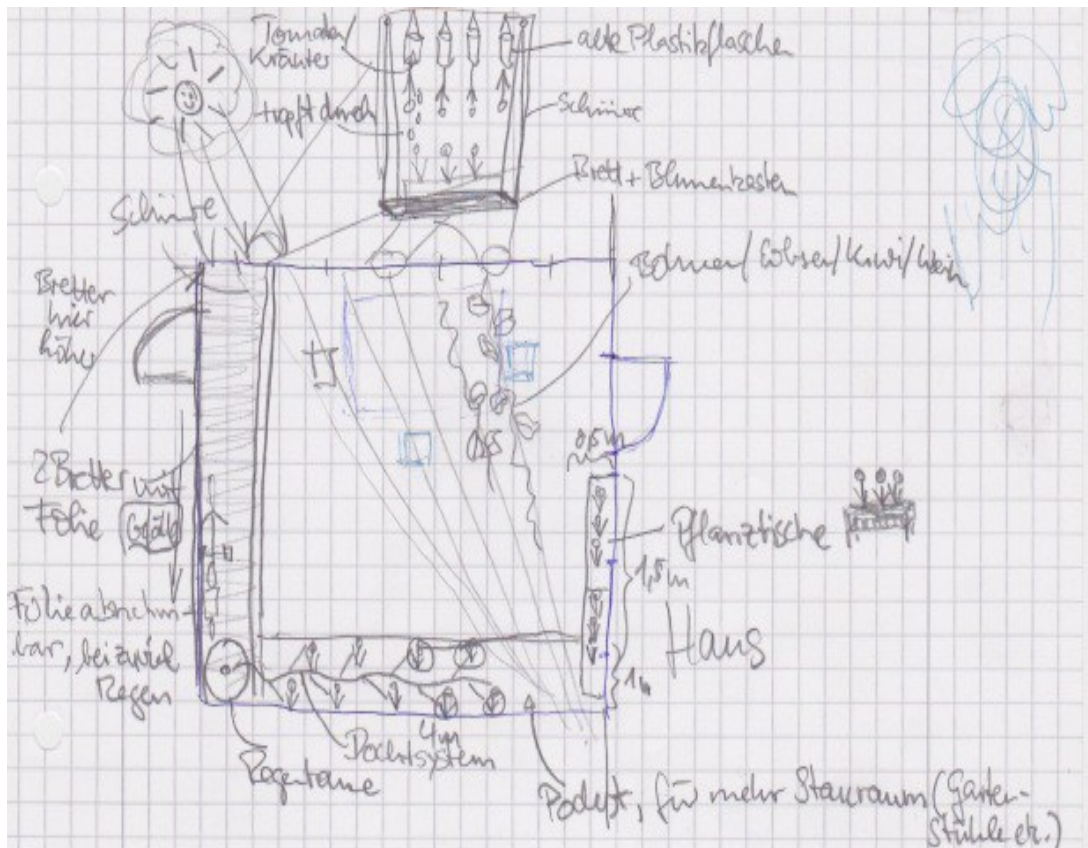 Tomaten/
Kräuter
alte Plastikflaschen
tropft durch
Schnüre
Brett + Blumenkasten
Schnüre
Bohnen/Erbsen/Kiwi/Wein
Bretter
hier
höher
0,5m
2 Bretter mit
Folie
Gefälle
Pflanztische
1,5m
Folie abnehm-
bar, bei zuviel
Regen
Haus
1m
4m
Dochtsystem
Regentonne
Podest, für mehr Stauraum (Garten-
stühle etc.)